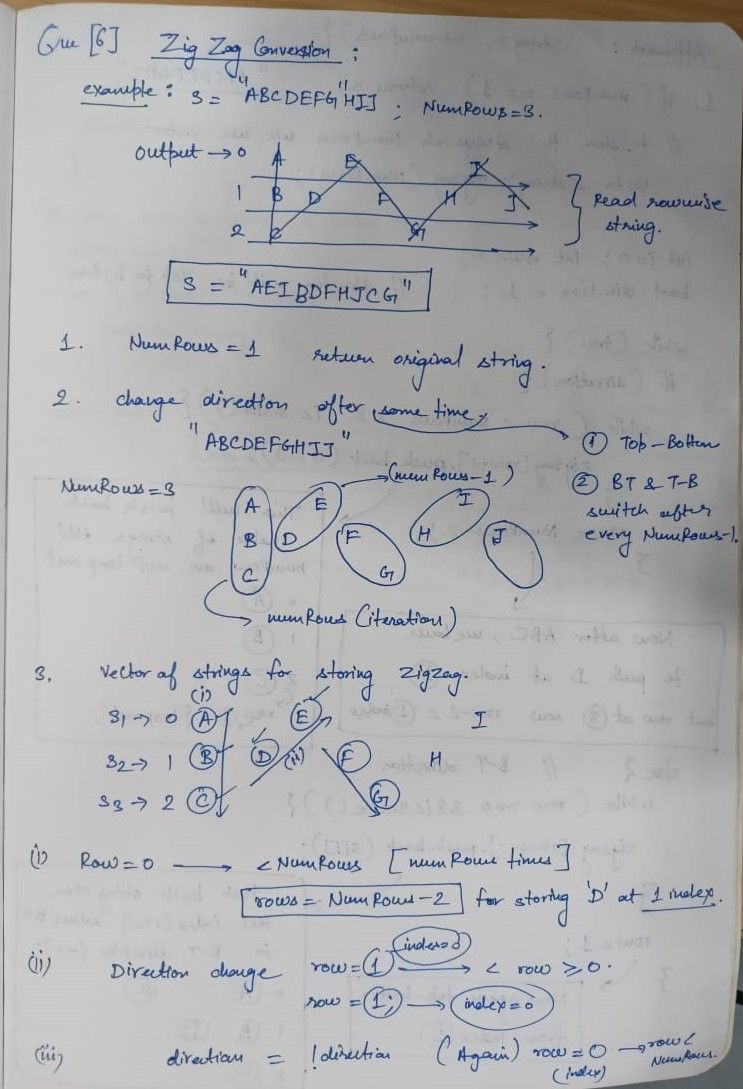 Que [6] Zig Zag Conversion :
example : S = "ABCDEFG"HIJ ; NumRows=3.
Output → 0 A E I
1 B D F H J
2 C G
Read rowwise
string.
S = "AEIBDFHJCG"
1. NumRows = 1 return original string.
2. change direction after some time,
"ABCDEFGHIJ"
① Top-Bottom
② BT & T-B
switch after
every NumRows-1.
NumRows=3
(numRows-1)
A E I
B D F H J
C G
numRows (iteration)
3. Vector of strings for storing ZigZag.
(i)
S1 → 0 A E I
S2 → 1 B D (ii) F H
S3 → 2 C G
(i) Row=0 → < NumRows [numRows times]
rows = NumRows-2 for storing 'D' at 1 index.
(ii) Direction change row=1 (index=0) → < row ≥ 0.
row = 1; → index=0
(iii) direction = !direction (Again) row=0 → row<
(index) NumRows.